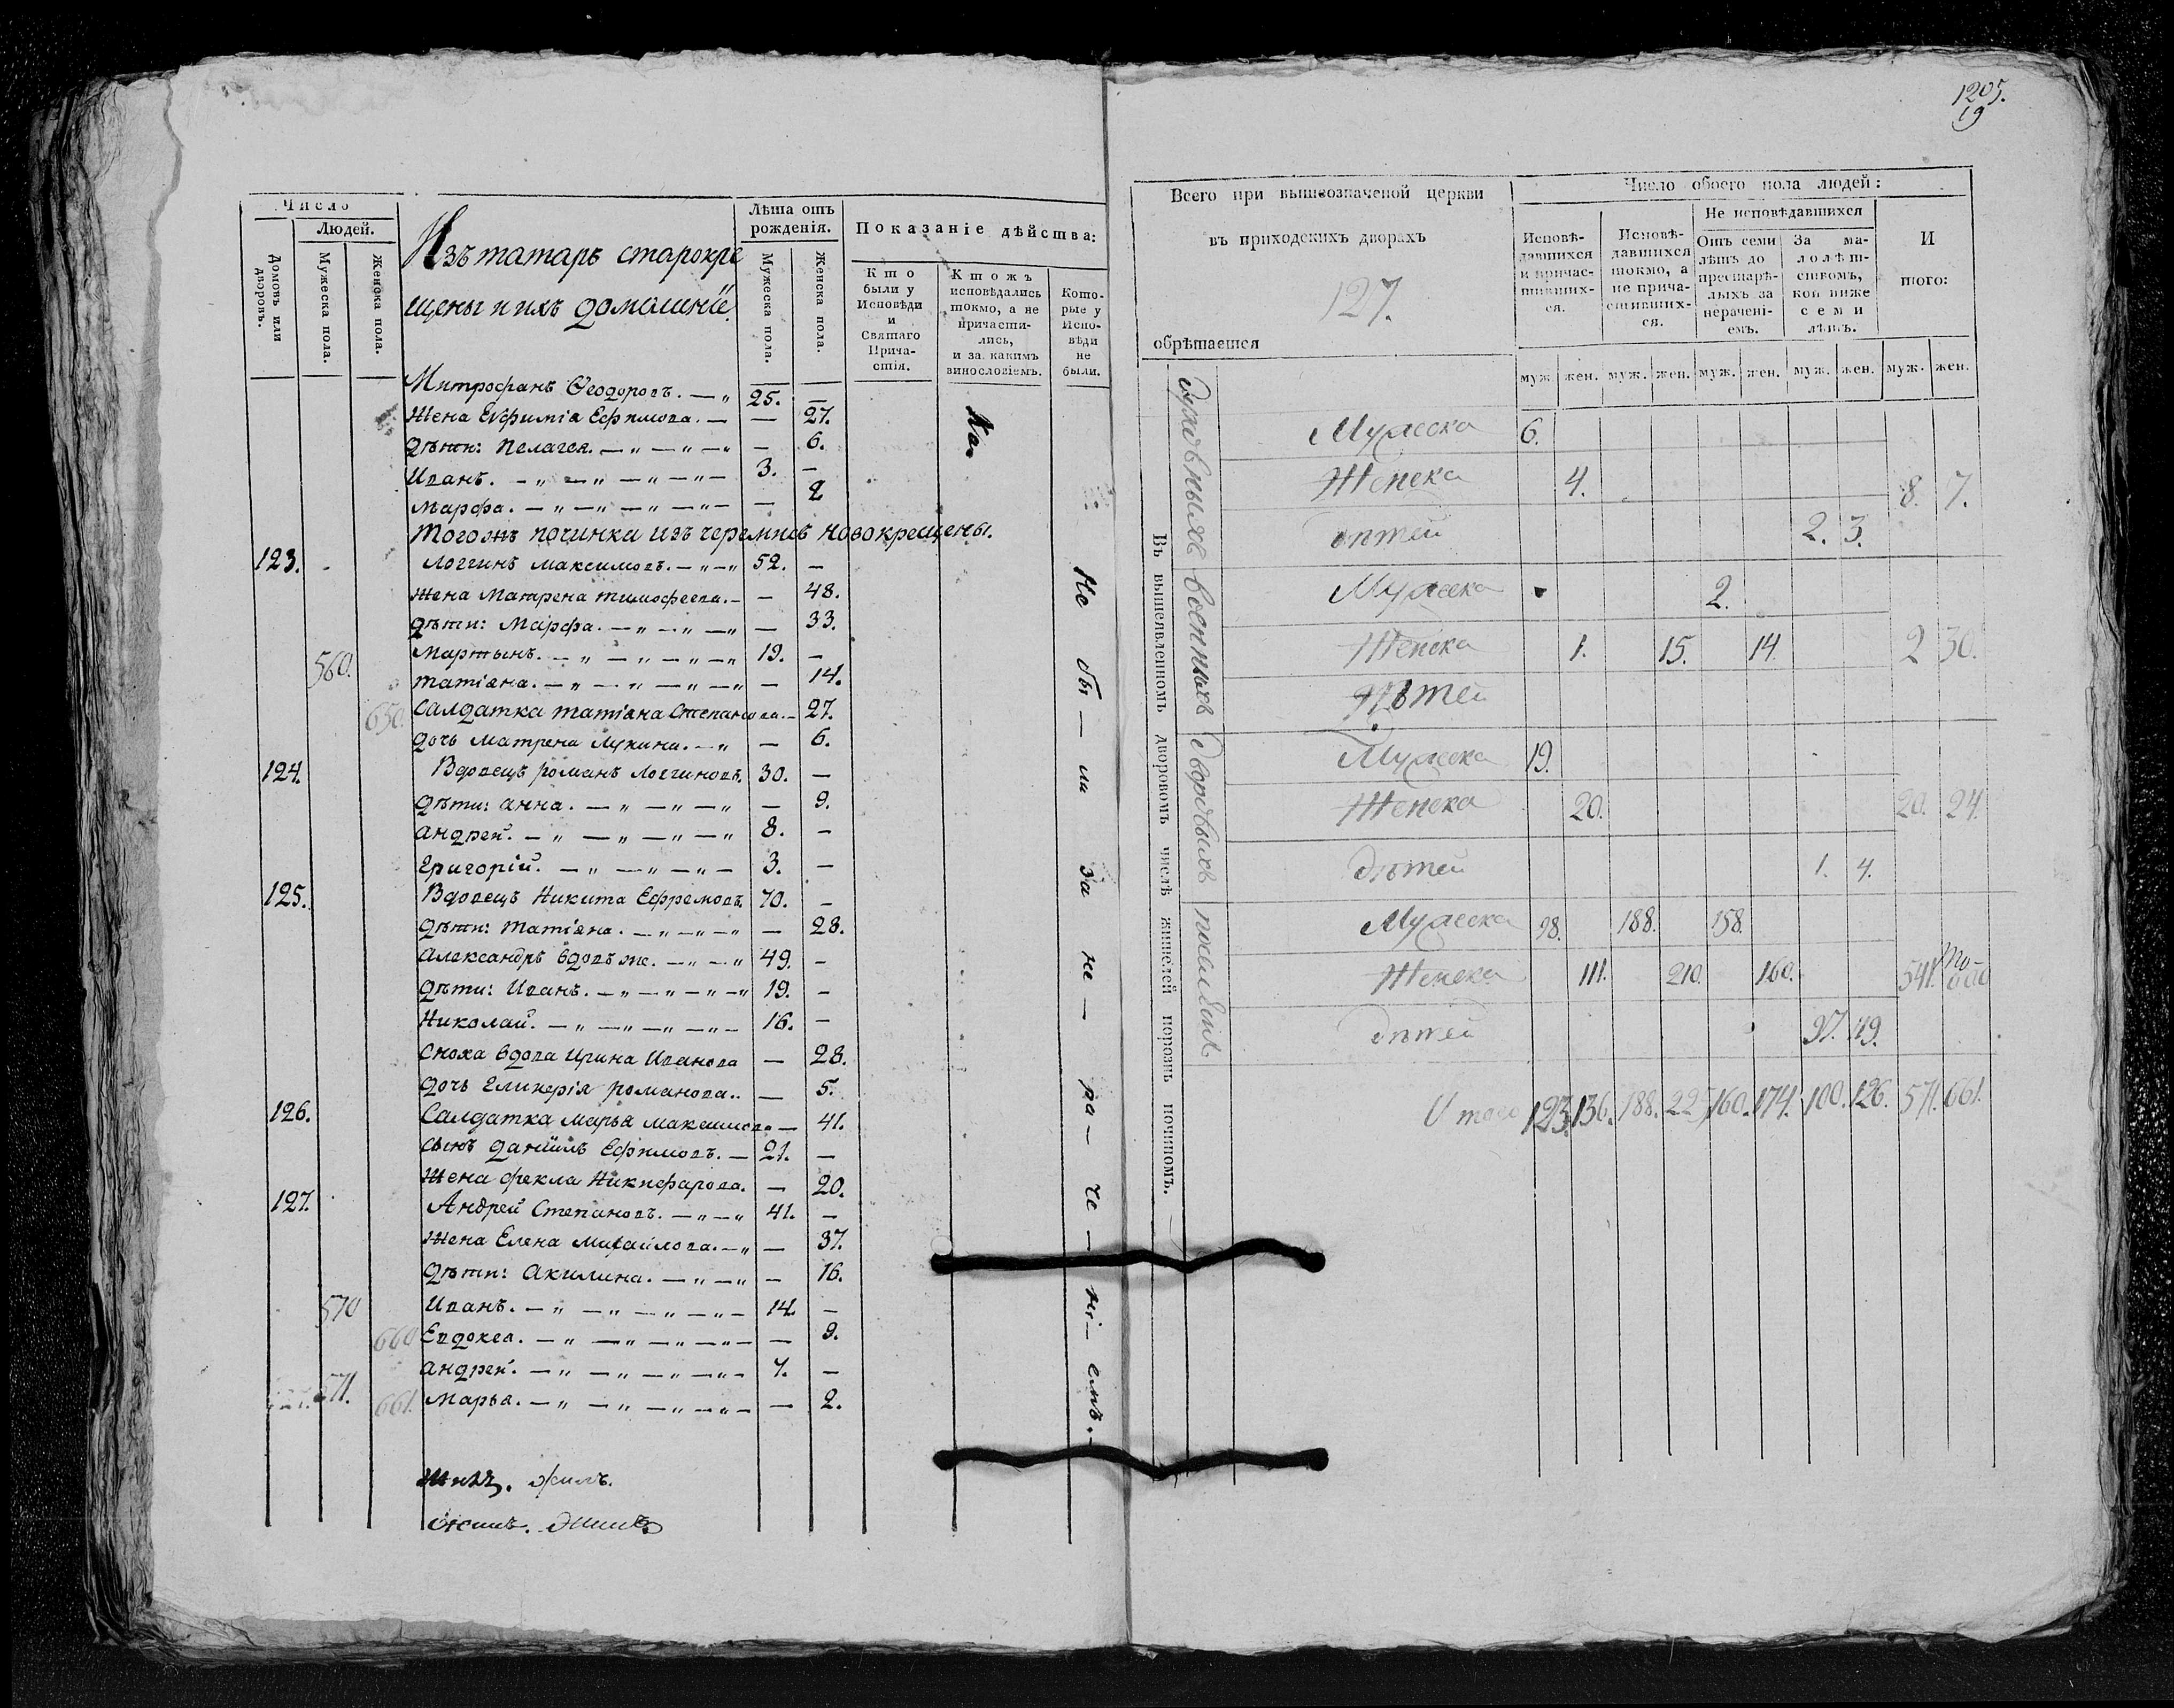 Число
Людей.
Домовъ или дворовъ.
Мужеска пола.
Женска пола.
Изъ татаръ старокре
щены и ихъ домашніе.
Лѣта отъ рожденія.
Мужеска пола.
Женска пола.
Показаніе дѣйства:
Кто были у Исповѣди и Святаго Причастія.
Ктожъ исповѣдались токмо, а не причастились, и за какимъ винословіемъ.
Которые у Исповѣди не были.
Митрофанъ Ѳеодоровъ. — „ 25. —
Жена Евфимія Ефимова. — — 27.
дѣти: Пелагея. — „ — „ — „ — 6.
Иванъ. — „ — „ — „ — „ — 3. —
Марфа. — „ — „ — „ — „ — — 2
Тогожъ починка изъ черемисъ новокрещены.
123. Логгинъ Максимовъ. — „ — „ 52. —
Жена Матрена Тимофеева. — — 48.
дѣти: Марфа. — „ — „ — „ — 33.
Мартынъ. — „ — „ — „ — „ 19. —
560.
Татіана. — „ — „ — „ — „ — 14.
650. Салдатка Татіана Степанова. — 27.
дочь Матрена Лукина. — „ — 6.
124. Вдовецъ Романъ Логгиновъ. 30. —
дѣти: Анна. — „ — „ — „ — 9.
Андрей. — „ — „ — „ — „ 8. —
Григорій. — „ — „ — „ — 3. —
125. Вдовецъ Никита Ефремовъ. 70. —
дѣти: Татіана. — „ — „ — „ — 28.
Александръ вдовъ же. — „ — „ 49. —
дѣти: Иванъ. — „ — „ — „ — „ 19. —
Николай. — „ — „ — „ — „ — 16. —
Сноха вдова Ирина Иванова — 28.
дочь Гликерія Романова.. — 5.
126. Салдатка Марья Максимова — 41.
сынъ Даніилъ Ефимовъ. — 21. —
Жена Фекла Никифарова. — 20.
127. Андрей Степановъ. — „ — „ 41. —
Жена Елена Михайлова. — „ — 37.
дѣти: Акилина. — „ — „ — 16.
570 Иванъ. — „ — „ — „ — „ — 14. —
660 Евдокеа. — „ — „ — „ — „ — — 9.
Андрей. — „ — „ — „ — „ — 7. —
571. 661. Марья. — „ — „ — „ — „ — — 2.
Не бы — ли за не — ра — че — ні — емъ. —
1205.
19
Всего при вышеозначеной церкви
въ приходскихъ дворахъ
127.
обрѣтается
Число обоего пола людей:
Исповѣдавшихся и причастившихся.
Исповѣдавшихся токмо, а не причастившихся.
Не исповѣдавшихся
Отъ семи лѣтъ до престарѣлыхъ за нераченіемъ.
За малолѣтствомъ, кои ниже семи лѣтъ.
И того:
муж. жен. муж. жен. муж. жен. муж. жен. муж. жен.
Въ вышеявленномъ дворовомъ числѣ жителей порознь починомъ.
Духовныхъ
Мужеска 6.
Женска 4. 8. 7.
дѣтей 2. 3.
военныхъ
Мужеска 2.
Женска 1. 15. 14. 2 30.
дѣтей
дворовыхъ
Мужеска 19.
Женска 20. 20. 24.
дѣтей 1. 4.
Мужеска 98. 188. 158.
Женска 111. 210. 160. 541.
дѣтей 97. 119.
Итого 123. 136. 188. 225 160. 174. 100. 126. 571. 661.